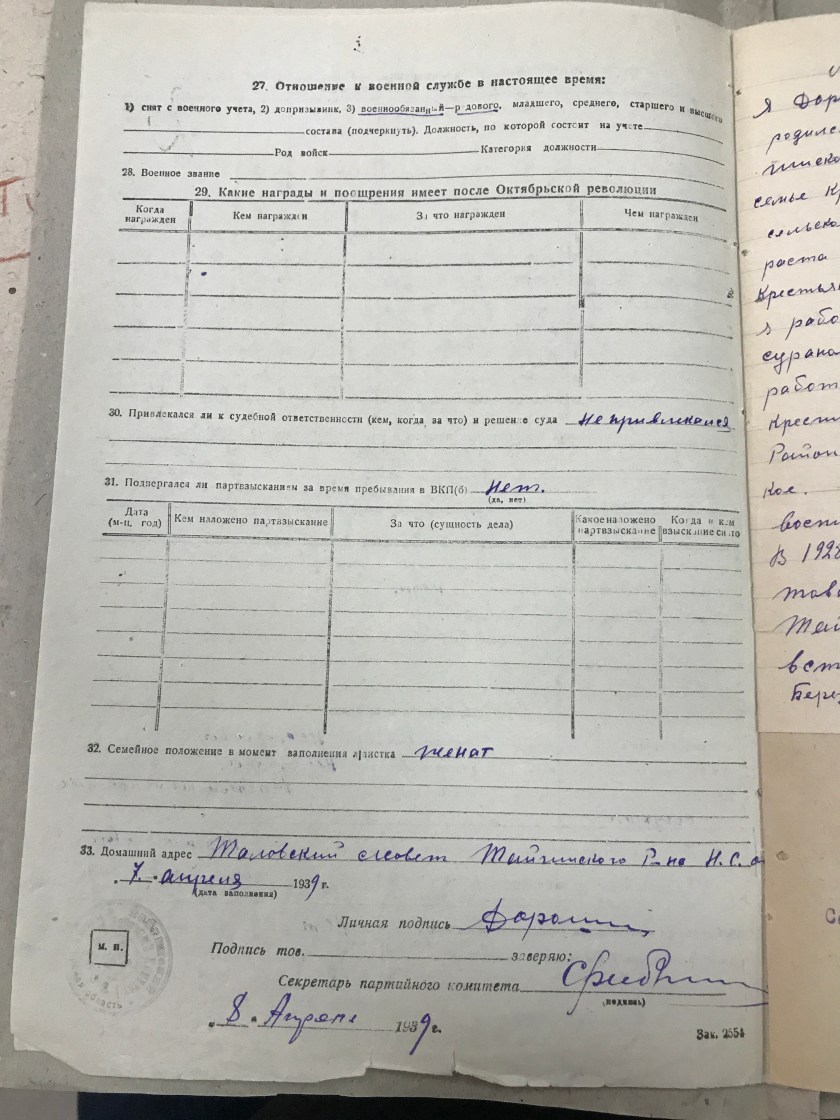 27. Отношение к военной службе в настоящее время:
1) снят с военного учета, 2) допризывник, 3) военнообязанный—рядового, младшего, среднего, старшего и высшего
состава (подчеркнуть). Должность, по которой состоит на учете
Род войск Категория должности
28. Военное звание
29. Какие награды и поощрения имеет после Октябрьской революции
Когда награжден Кем награжден За что награжден Чем награжден
30. Привлекался ли к судебной ответственности (кем, когда, за что) и решение суда не привлекался
31. Подвергался ли партвзысканиям за время пребывания в ВКП(б) нет.
(да, нет)
Дата (м-ц, год) Кем наложено партвзыскание За что (сущность дела) Какое наложено партвзыскание Когда и кем взыскание снято
32. Семейное положение в момент заполнения листка женат
33. Домашний адрес Таловский с/совет Тайгинского Р-на Н.С.О
7. апреля 1939 г.
(дата заполнения)
Личная подпись
м. п.
Подпись тов. заверяю:
Секретарь партийного комитета
(подпись)
„8" Апреля 1939 г.
Зак. 2554
Я Дор
родилс
семье Кр
сельско
раста
Крестья
з рабо
работ
Крест
Район
кое.
восп
В 192
Тай
вст
Берез